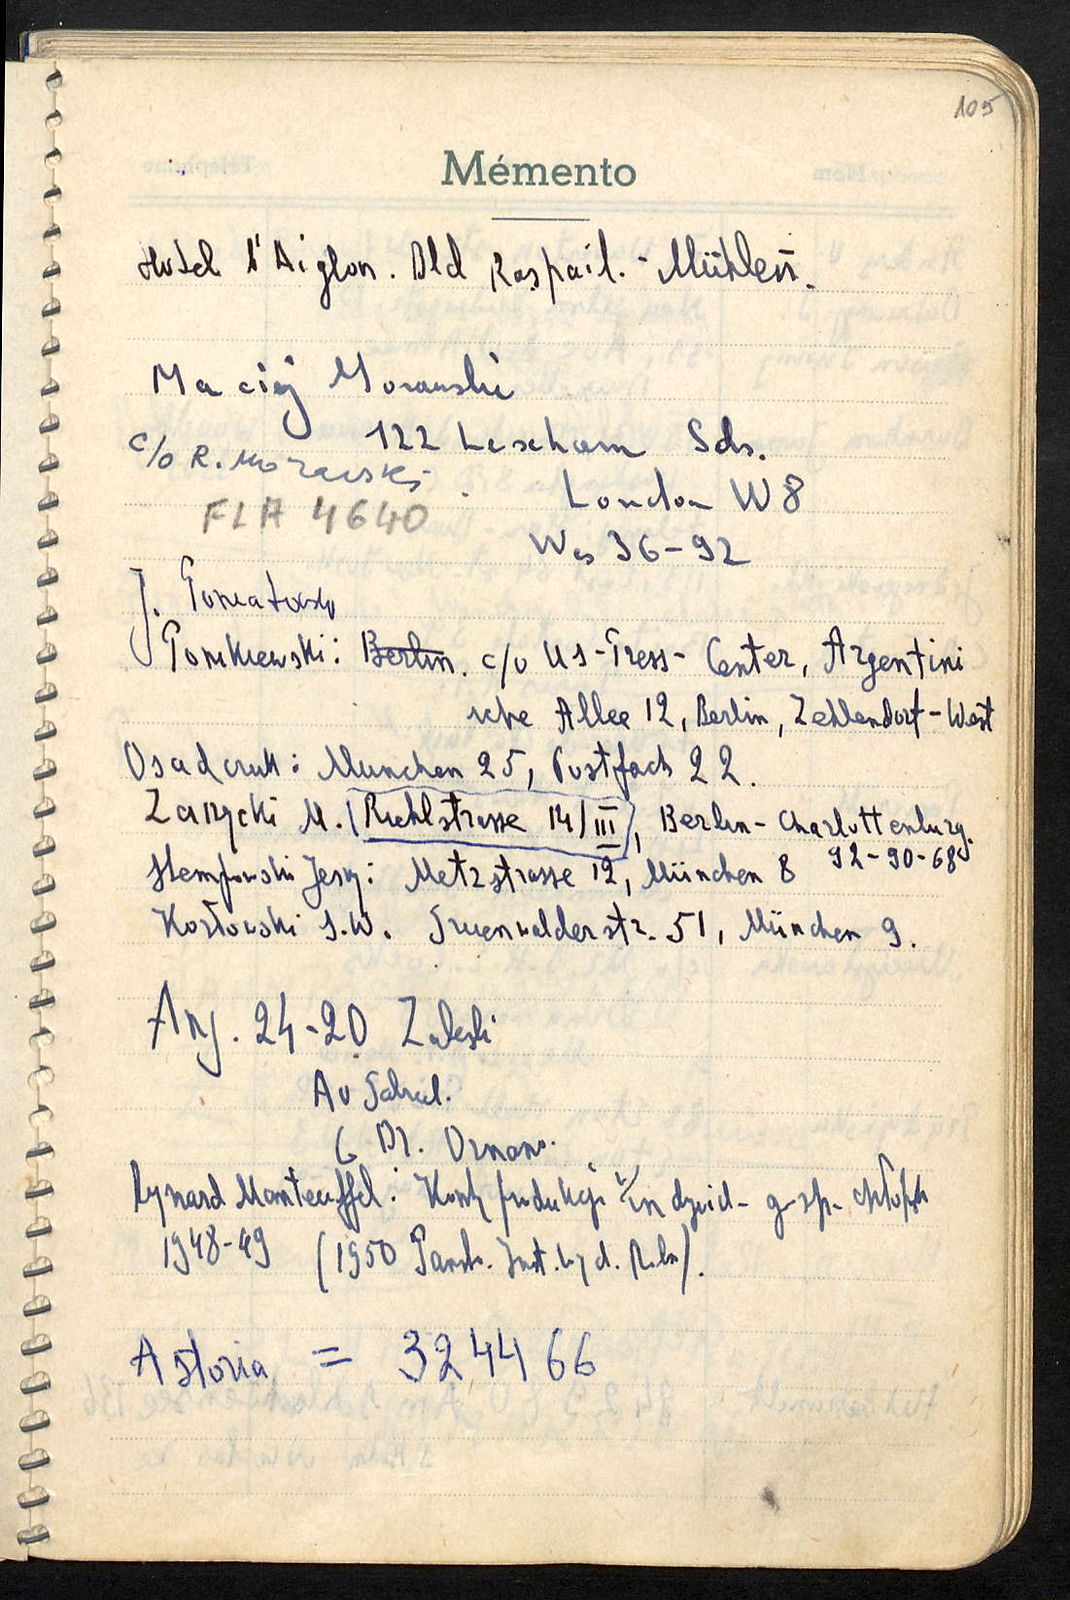 105
Mémento
Hotel l'Aiglon. Bld Raspail. - Mühlen.
Maciej Morawski
122 Lexham Gds.
c/o R. Morawski
London W8
FLA 4640
Wes 36-92
J. Poniatowski
Ponikiewski: Berlin. c/o US-Press-Center, Argentini
sche Allee 12, Berlin, Zehlendorf-West
Osadczuk: München 25, Postfach 22.
Zarzycki M. (Riehlstrasse 14/III), Berlin-Charlottenburg.
92-90-68
Stempowski Jerzy: Metzstrasse 12, München 8
Kozłowski S.W. Gruenwalderstr. 51, München 9.
Anj. 24-20 Zaleski
Av Gabriel.
6 Dr. Ornano.
Ryszard Manteuffel: Koszty produkcji w indywid- gosp. chłopsk
1948-49 (1950 Państ. Inst. Wyd. Roln).
Astoria = 324466